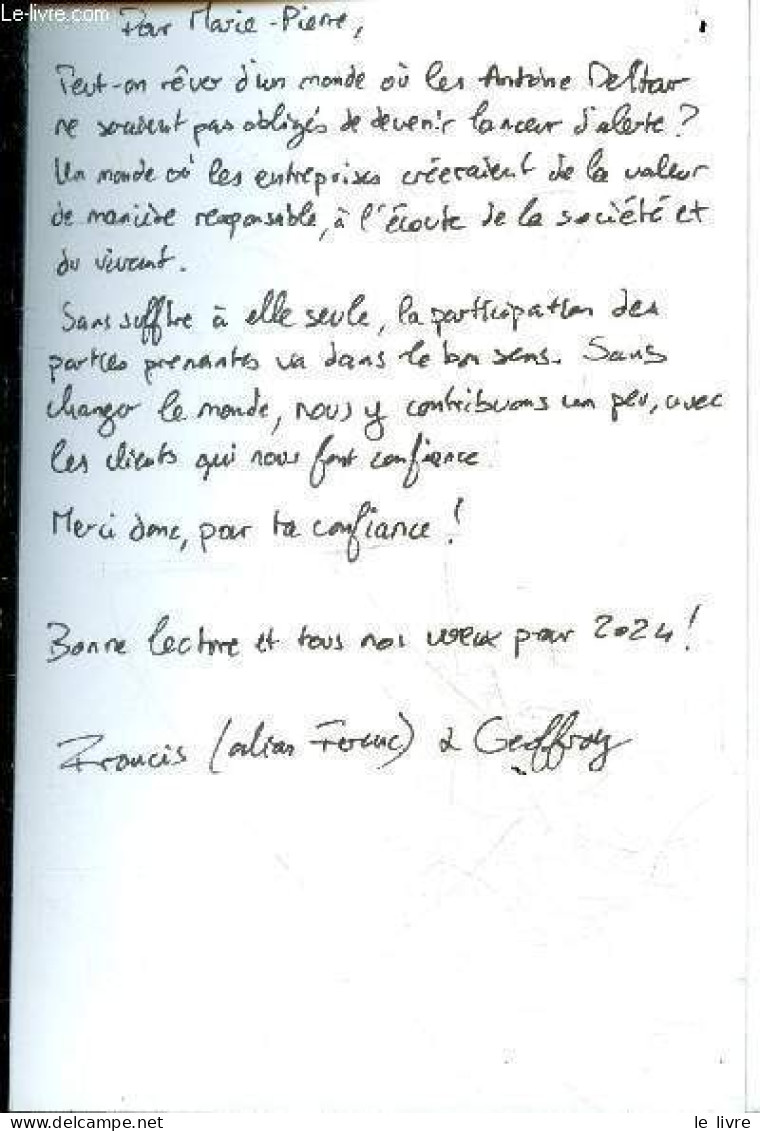 Le-livre.com
Pour Marie-Pierre,
Peut-on rêver d'un monde où les Antoine Deltour
ne soient pas obligés de devenir lanceur d'alerte ?
Un monde où les entreprises créeraient de la valeur
de manière responsable, à l'écoute de la société et
du vivant.
Sans suffire à elle seule, la participation des
parties prenantes va dans le bon sens. Sans
changer le monde, nous y contribuons un peu, avec
les clients qui nous font confiance.
Merci donc, pour ta confiance !
Bonne lecture et tous nos vœux pour 2024 !
Francis (alias Ferenc) & Geoffroy
www.delcampe.net
le livre